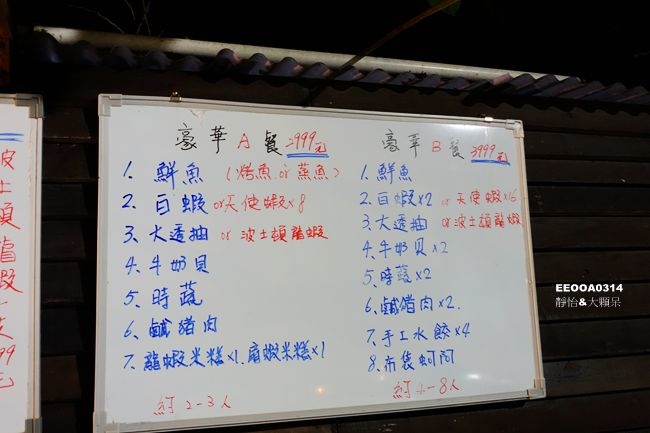 波士頓龍蝦
豪華A餐 2999元
1. 鮮魚 (烤魚 or 蒸魚)
2. 白蝦 or 天使蝦×8
3. 大透抽 or 波士頓龍蝦
4. 牛奶貝
5. 時蔬
6. 鹹豬肉
7. 龍蝦米糕×1. 扇蝦米糕×1
約 2-3人
豪華B餐 3999元
1. 鮮魚
2. 白蝦×2 or 天使蝦×16
3. 大透抽 or 波士頓龍蝦
4. 牛奶貝×2
5. 時蔬×2
6. 鹹豬肉×2.
7. 手工水餃×4
8. 布袋蚵
約 4-8人
EEOOA0314
靜怡&大顆呆